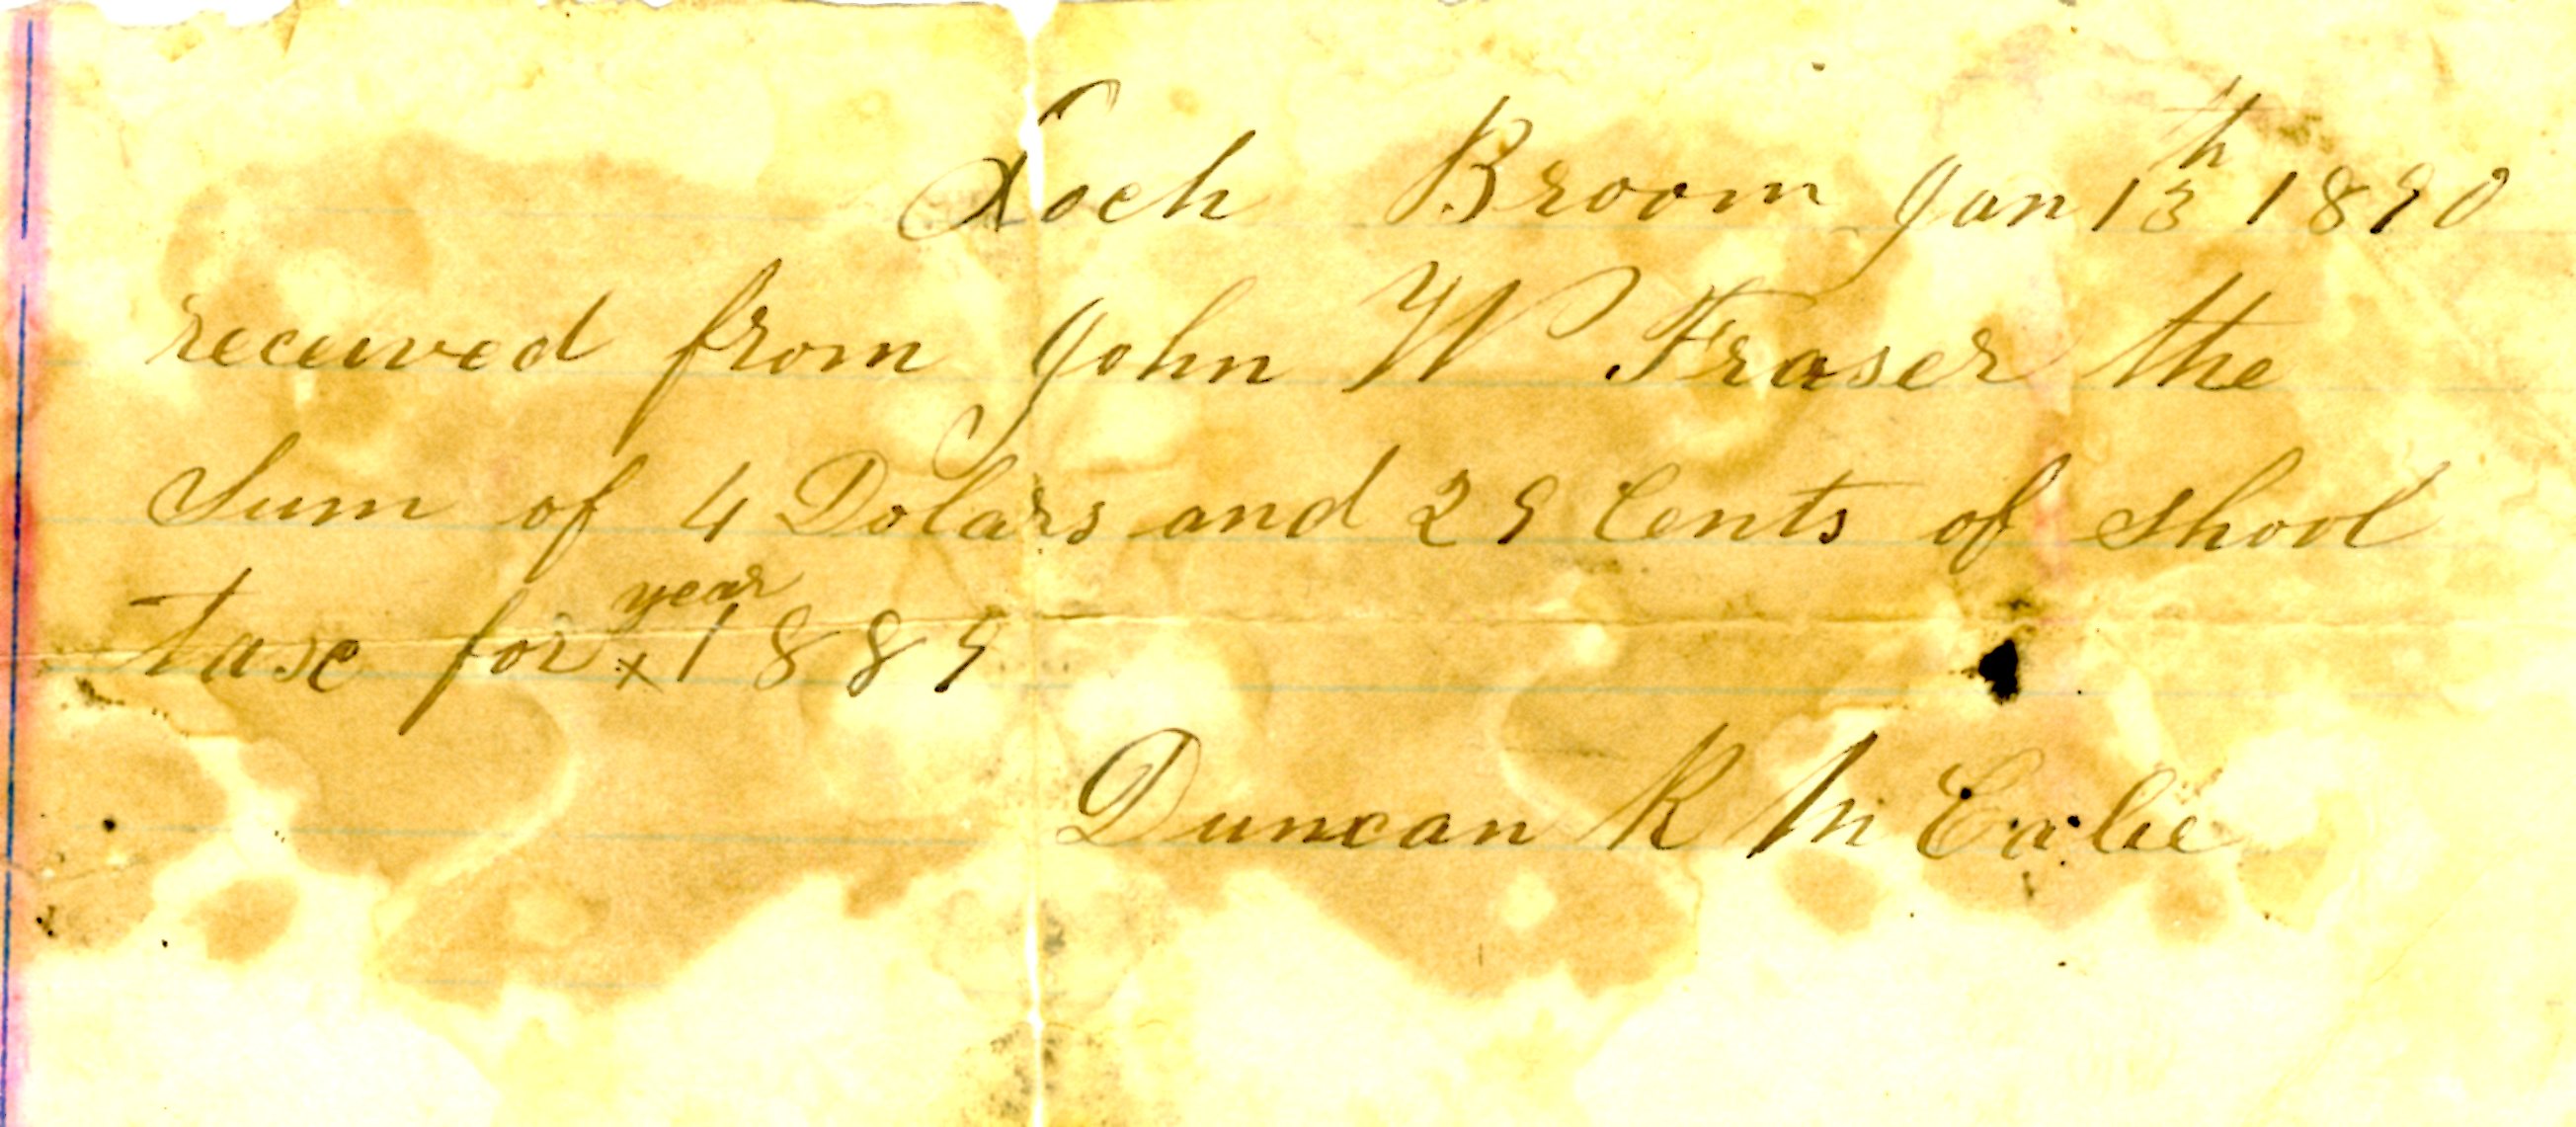 Loch Broom Jan 13th 1890
received from John W Fraser the
Sum of 4 Dolars and 29 Cents of shool
tase for year x 1889
Duncan R Mc